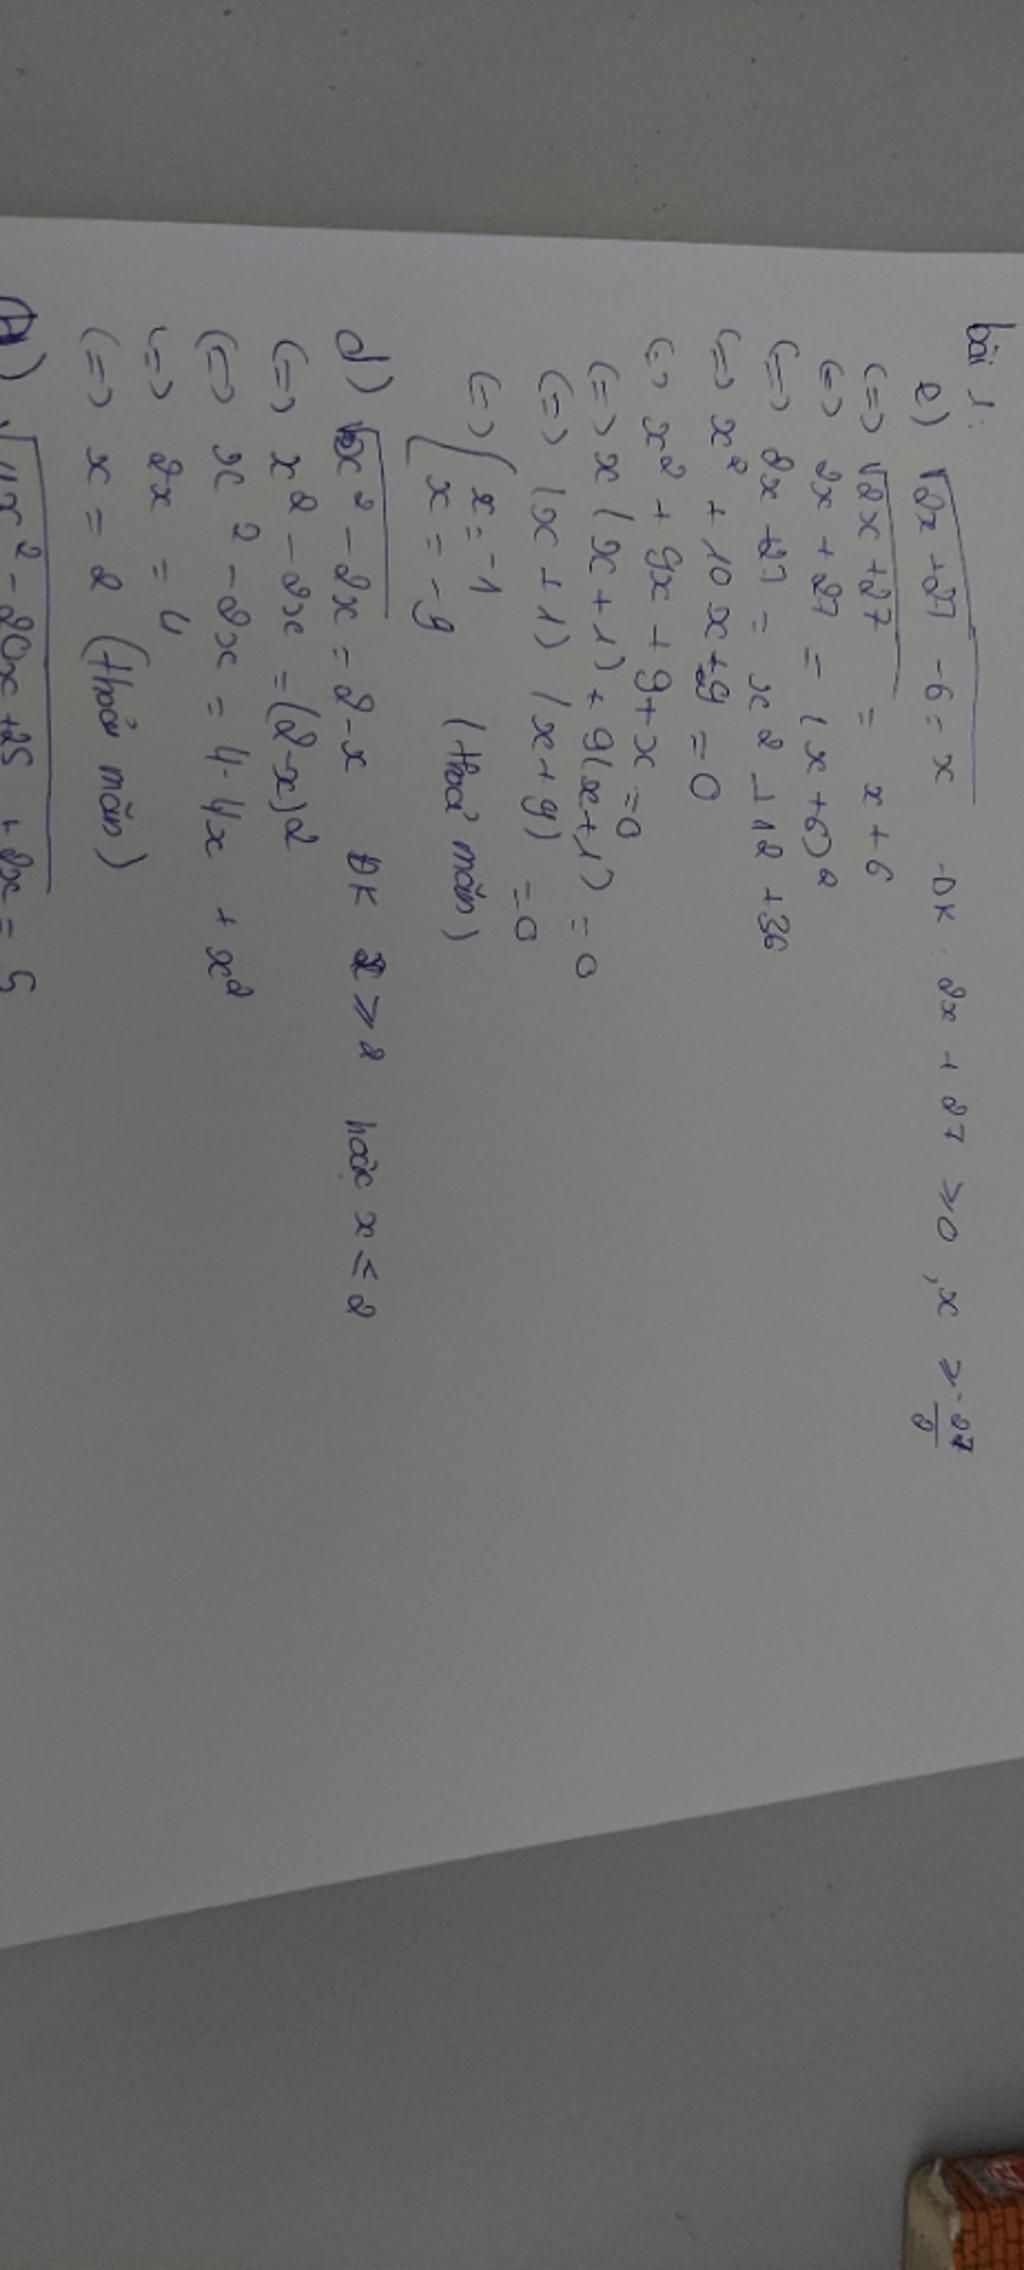 bài 1:
e) √2x+27 -6 = x ĐK: 2x + 27 ≥0, x ≥ -27/2
(=) √2x+27 = x+6
(=) 2x+27 = (x+6)2
(=) 2x+27 = x2 +12 +36
(=) x2 + 10x+9 = 0
(=) x2 + 9x + 9+x = 0
(=) x(x+1) + 9(x+1) = 0
(=) (x+1) (x+9) = 0
(=) [ x=-1
x = -9 (thoả mãn)
d) √x2-2x = 2-x ĐK x ≥ 2 hoặc x ≤ 2
(=) x2-2x = (2-x)2
(=) x2-2x = 4-4x + x2
(=) 2x = 4
(=) x = 2 (thoả mãn)
√x2-20x+25 + 2x = 5